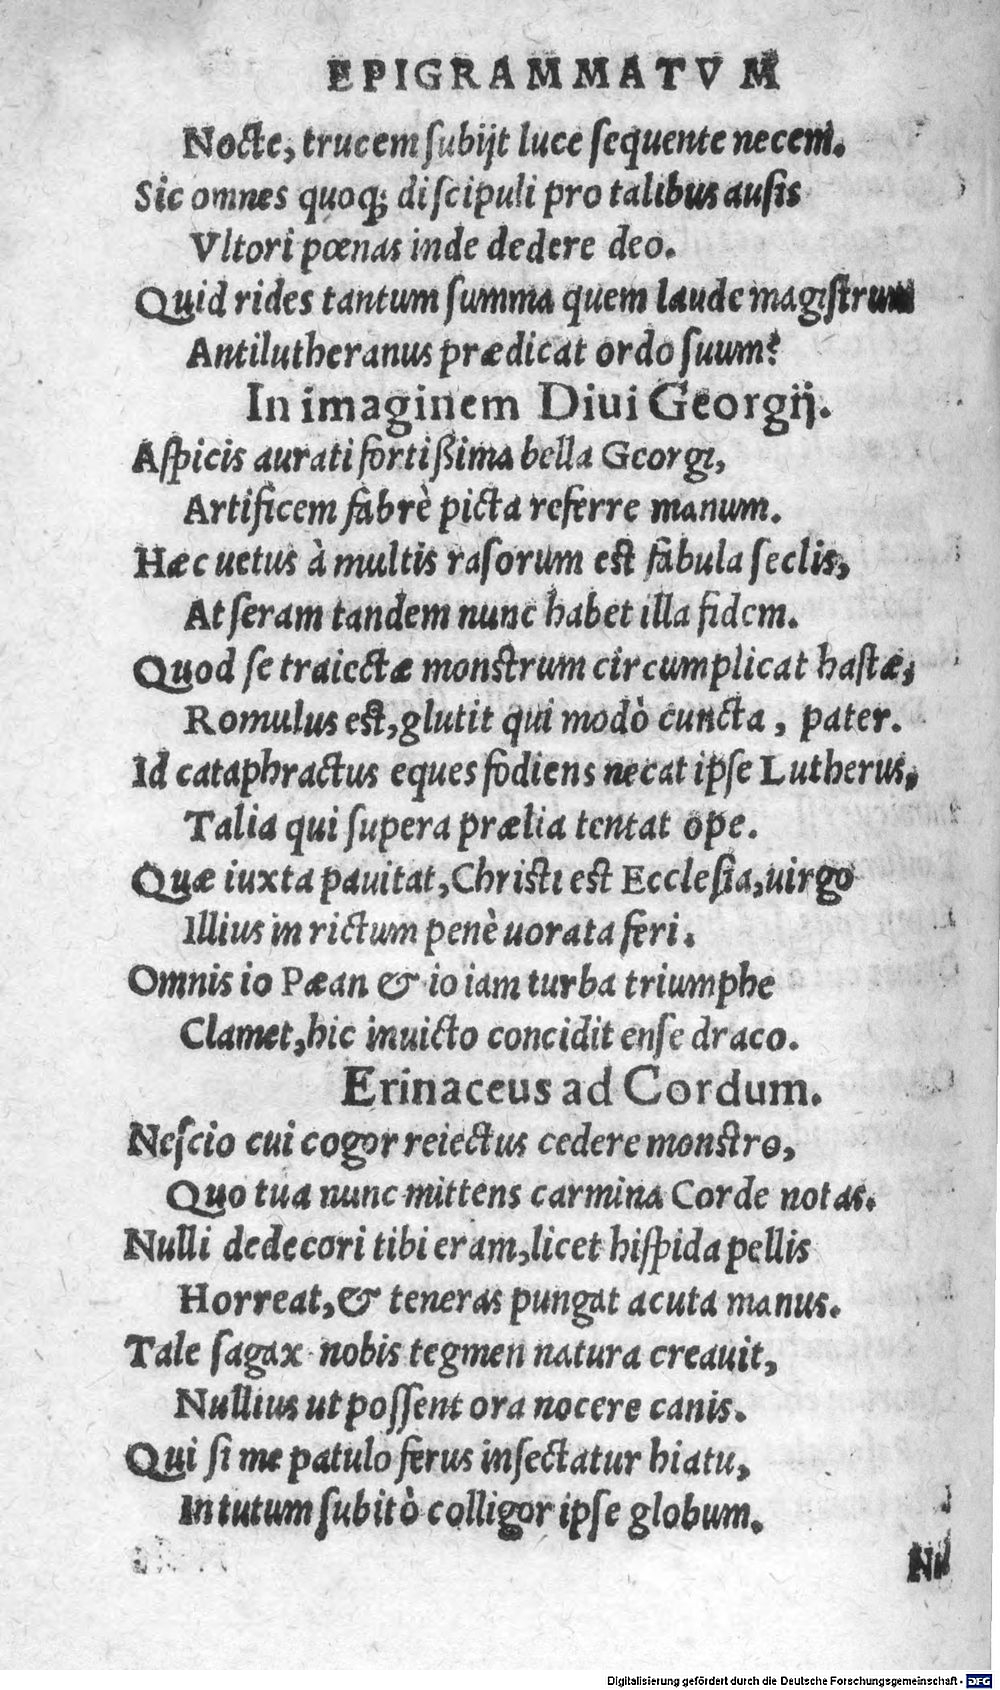 EPIGRAMMATVM
Nocte, trucem subijt luce sequente necem.
Sic omnes quoq; discipuli pro talibus ausis
Vltori pœnas inde dedere deo.
Quid rides tantum summa quem laude magistrum
Antilutheranus prædicat ordo suum?
In imaginem Diui Georgij.
Aspicis aurati fortißima bella Georgi,
Artificem fabrè picta referre manum.
Hæc uetus à multis rasorum est fabula seclis,
At seram tandem nunc habet illa fidem.
Quod se traiectæ monstrum circumplicat hastæ,
Romulus est, glutit qui modò cuncta, pater.
Id cataphractus eques fodiens necat ipse Lutherus,
Talia qui supera prælia tentat ope.
Quæ iuxta pauitat, Christi est Ecclesia, uirgo
Illius in rictum penè uorata feri.
Omnis io Pæan & io iam turba triumphe
Clamet, hic inuicto concidit ense draco.
Erinaceus ad Cordum.
Nescio cui cogor reiectus cedere monstro,
Quo tua nunc mittens carmina Corde notas.
Nulli dedecori tibi eram, licet hispida pellis
Horreat, & teneras pungat acuta manus.
Tale sagax nobis tegmen natura creauit,
Nullius ut possent ora nocere canis.
Qui si me patulo ferus insectatur hiatu,
In tutum subitò colligor ipse globum.
Digitalisierung gefördert durch die Deutsche Forschungsgemeinschaft - DFG